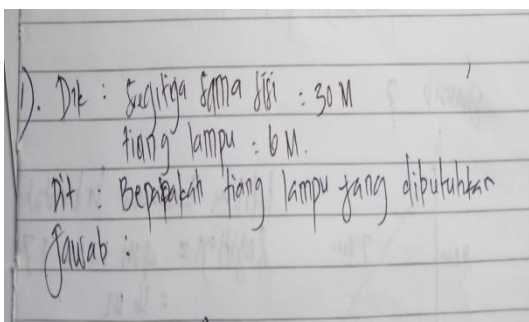 1). Dik : Segitiga sama sisi : 30 M
tiang lampu : 6 M.
Dit : Bepapakah tiang lampu yang dibutuhkan
Jawab :